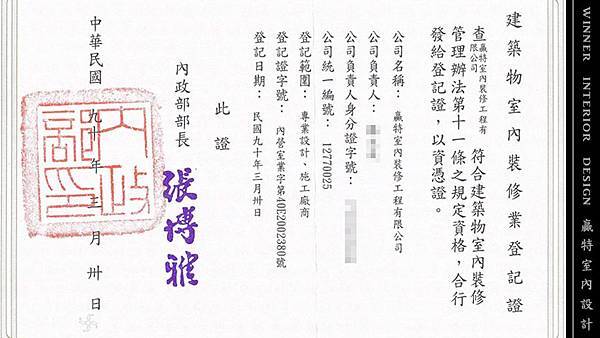 建築物室內裝修業登記證
查贏特室內裝修工程有限公司 符合建築物室內裝修
管理辦法第十一條之規定資格，合行
發給登記證，以資憑證。
公司名稱：贏特室內裝修工程有限公司
公司負責人：
公司負責人身分證字號：
公司統一編號：12770025
登記範圍：專業設計、施工廠商
登記證字號：內營室業字第40E2002380號
登記日期：民國九十年三月卅日
此證
內政部部長 張博雅
中華民國 九十 年 三 月 卅 日
內政部印
WINNER INTERIOR DESIGN 贏特室內設計